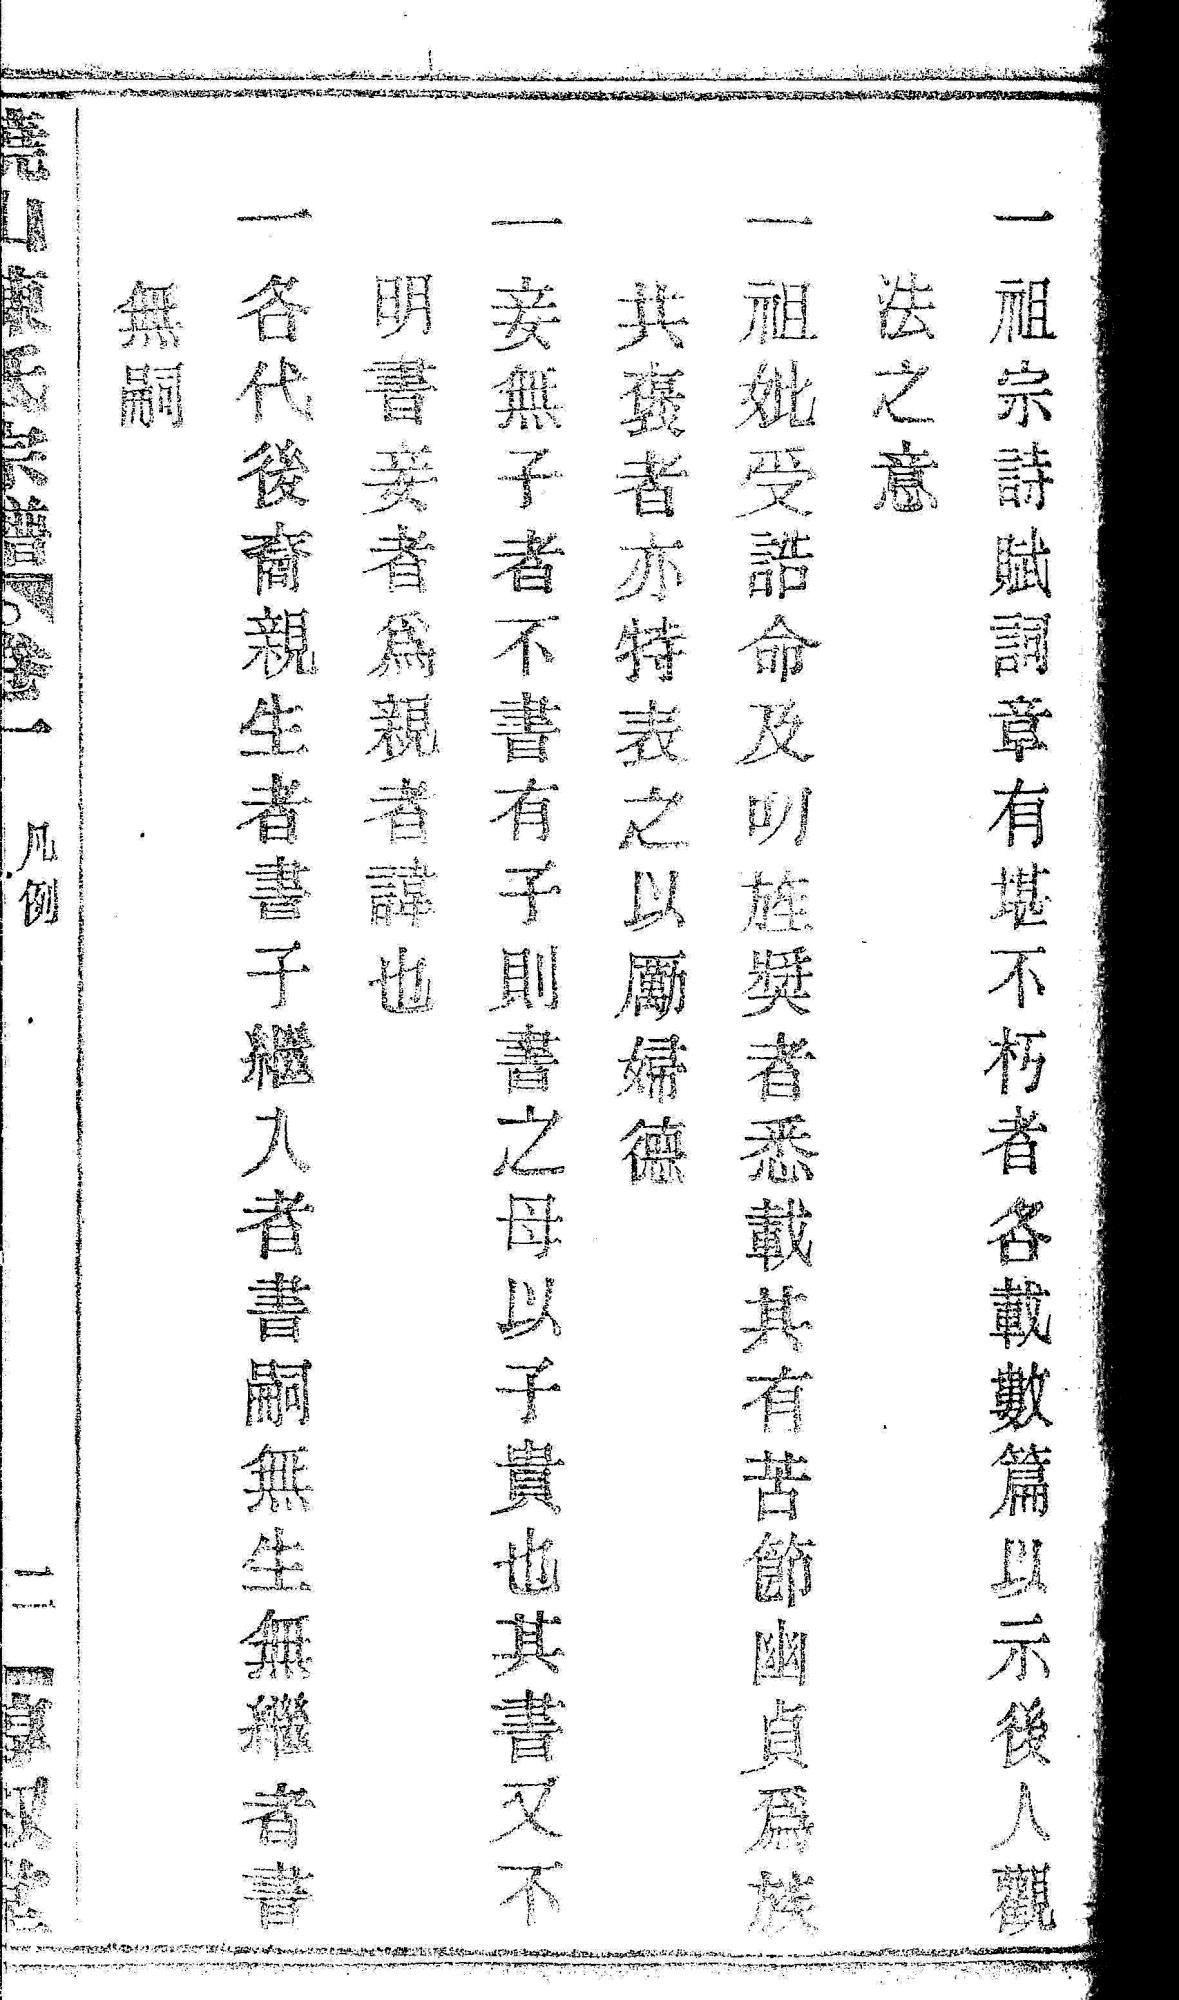 一祖宗詩賦詞章有堪不朽者各載數篇以示後人觀
法之意
一祖妣受誥命及明旌獎者悉載其有苦節幽貞爲族
共褒者亦特表之以勵婦德
一妾無子者不書有子則書之母以子貴也其書又不
明書妾者爲親者諱也
一各代後裔親生者書子繼人者書嗣無生無繼者書
無嗣
山陳氏宗譜 卷一 凡例 二 敘堂